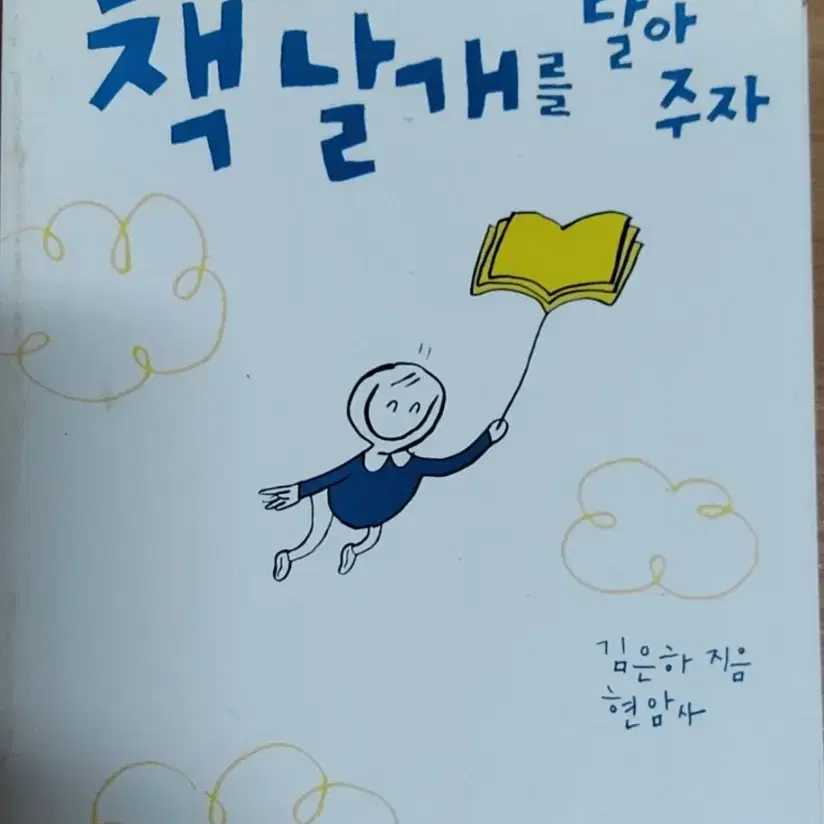 책 날개를 달아
주자
김은하 지음
현암사